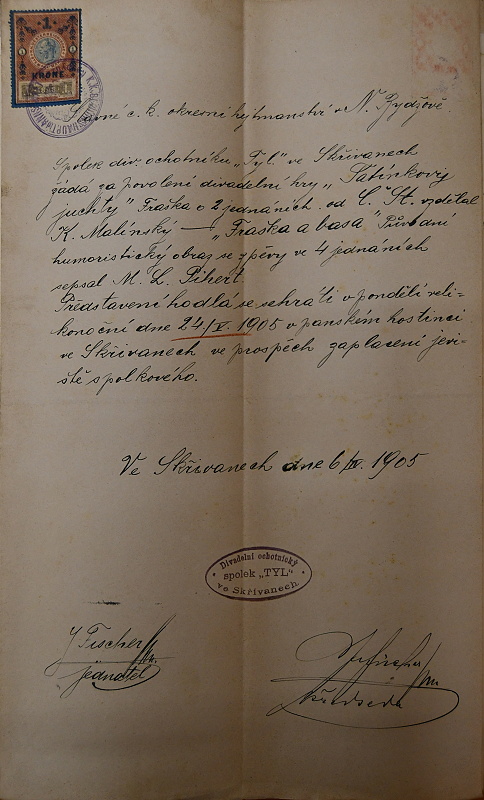 1
KRONE
Slavné c. k. okresní hejtmanství v N. Bydžově
Spolek div. ochotníků „Tyl" ve Skřivanech
žádá za povolení divadelní hry „Tatínkovy
juchty" Fraška o 2 jednáních od Č. St. vzdělal
K. Malínský — „Fraška a basa" Původní
humoristický obraz se zpěvy ve 4 jednáních
sepsal M. L. Pihert.
Představení hodlá se sehráti v pondělí veli-
konoční dne 24/IV. 1905 v panském hostinci
ve Skřivanech ve prospěch zaplacení jevi-
ště spolkového.
Ve Skřivanech dne 6/IV. 1905
Divadelní ochotnický
spolek „TYL"
ve Skřivanech
J Fischer
jednatel
předseda